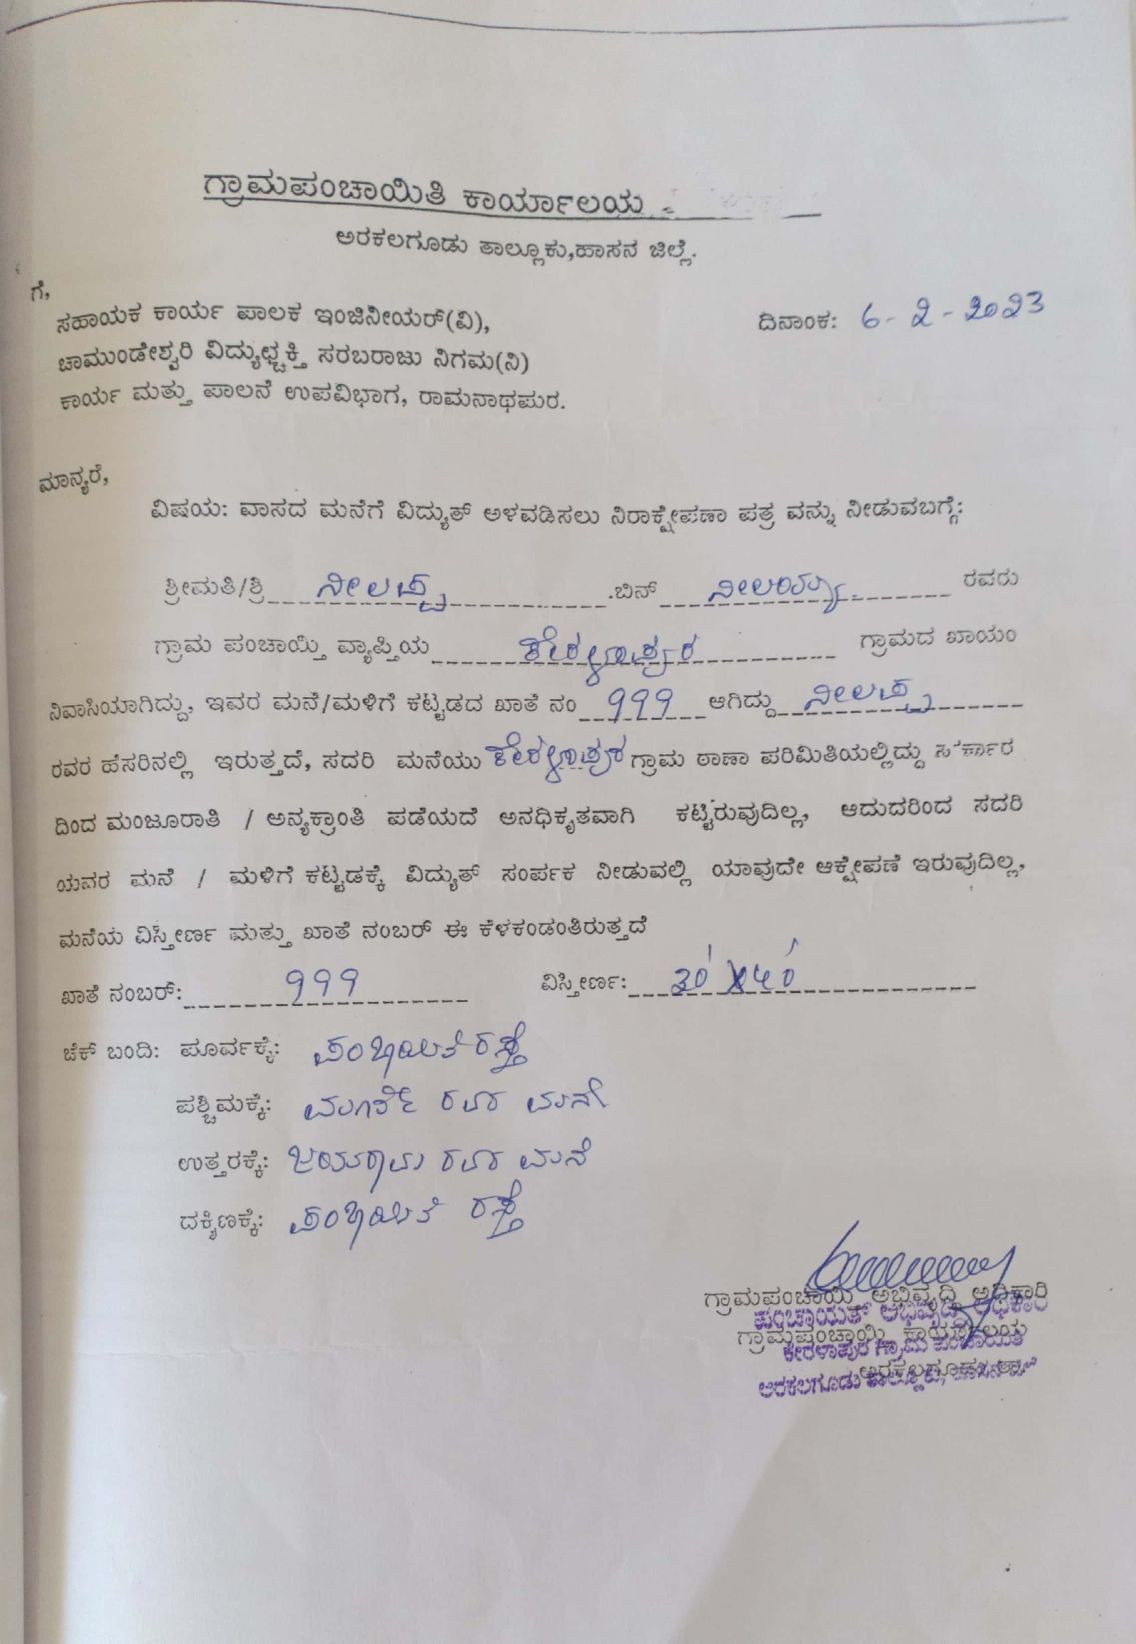 ಗ್ರಾಮಪಂಚಾಯಿತಿ ಕಾರ್ಯಾಲಯ
ಅರಕಲಗೂಡು ತಾಲ್ಲೂಕು,ಹಾಸನ ಜಿಲ್ಲೆ.
ಗೆ,
ಸಹಾಯಕ ಕಾರ್ಯ ಪಾಲಕ ಇಂಜಿನೀಯರ್(ವಿ), ದಿನಾಂಕ: 6-2-2023
ಚಾಮುಂಡೇಶ್ವರಿ ವಿದ್ಯುಚ್ಛಕ್ತಿ ಸರಬರಾಜು ನಿಗಮ(ನಿ)
ಕಾರ್ಯ ಮತ್ತು ಪಾಲನೆ ಉಪವಿಭಾಗ, ರಾಮನಾಥಪುರ.
ಮಾನ್ಯರೆ,
ವಿಷಯ: ವಾಸದ ಮನೆಗೆ ವಿದ್ಯುತ್ ಅಳವಡಿಸಲು ನಿರಾಕ್ಷೇಪಣಾ ಪತ್ರ ವನ್ನು ನೀಡುವಬಗ್ಗೆ:
ಶ್ರೀಮತಿ/ಶ್ರಿ ನೀಲಪ್ಪ .ಬಿನ್ ನೀಲಯ್ಯ ರವರು
ಗ್ರಾಮ ಪಂಚಾಯ್ತಿ ವ್ಯಾಪ್ತಿಯ ಕೇರಳಾಪುರ ಗ್ರಾಮದ ಖಾಯಂ
ನಿವಾಸಿಯಾಗಿದ್ದು, ಇವರ ಮನೆ/ಮಳಿಗೆ ಕಟ್ಟಡದ ಖಾತೆ ನಂ 999 ಆಗಿದ್ದು ನೀಲಪ್ಪ
ರವರ ಹೆಸರಿನಲ್ಲಿ ಇರುತ್ತದೆ, ಸದರಿ ಮನೆಯು ಕೇರಳಾಪುರ ಗ್ರಾಮ ಠಾಣಾ ಪರಿಮಿತಿಯಲ್ಲಿದ್ದು ಸರ್ಕಾರ
ದಿಂದ ಮಂಜೂರಾತಿ / ಅನ್ಯಕ್ರಾಂತಿ ಪಡೆಯದೆ ಅನಧಿಕೃತವಾಗಿ ಕಟ್ಟಿರುವುದಿಲ್ಲ, ಆದುದರಿಂದ ಸದರಿ
ಯವರ ಮನೆ / ಮಳಿಗೆ ಕಟ್ಟಡಕ್ಕೆ ವಿದ್ಯುತ್ ಸಂರ್ಪಕ ನೀಡುವಲ್ಲಿ ಯಾವುದೇ ಆಕ್ಷೇಪಣೆ ಇರುವುದಿಲ್ಲ,
ಮನೆಯ ವಿಸ್ತೀರ್ಣ ಮತ್ತು ಖಾತೆ ನಂಬರ್ ಈ ಕೆಳಕಂಡಂತಿರುತ್ತದೆ
ಖಾತೆ ನಂಬರ್: 999 ವಿಸ್ತೀರ್ಣ: 30'X40'
ಚೆಕ್ ಬಂದಿ: ಪೂರ್ವಕ್ಕೆ: ಪಂಚಾಯಿತಿ ರಸ್ತೆ
ಪಶ್ಚಿಮಕ್ಕೆ: ರವರ ಮನೆ
ಉತ್ತರಕ್ಕೆ: ಜಯರಾಮ ರವರ ಮನೆ
ದಕ್ಷಿಣಕ್ಕೆ: ಪಂಚಾಯಿತಿ ರಸ್ತೆ
ಗ್ರಾಮಪಂಚಾಯಿ ಅಭಿವೃದ್ಧಿ ಅಧಿಕಾರಿ
ಪಂಚಾಯತ್ ಅಭಿವೃದ್ಧಿ ಅಧಿಕಾರಿ
ಗ್ರಾಮಪಂಚಾಯ್ತಿ ಕಾರ್ಯಾಲಯ
ಕೇರಳಾಪುರ ಗ್ರಾಮ ಪಂಚಾಯಿತಿ
ಅರಕಲಗೂಡು ತಾ
ಅರಕಲಗೂಡು ತಾಲ್ಲೂಕು, ಹಾಸನ ಜಿಲ್ಲೆ